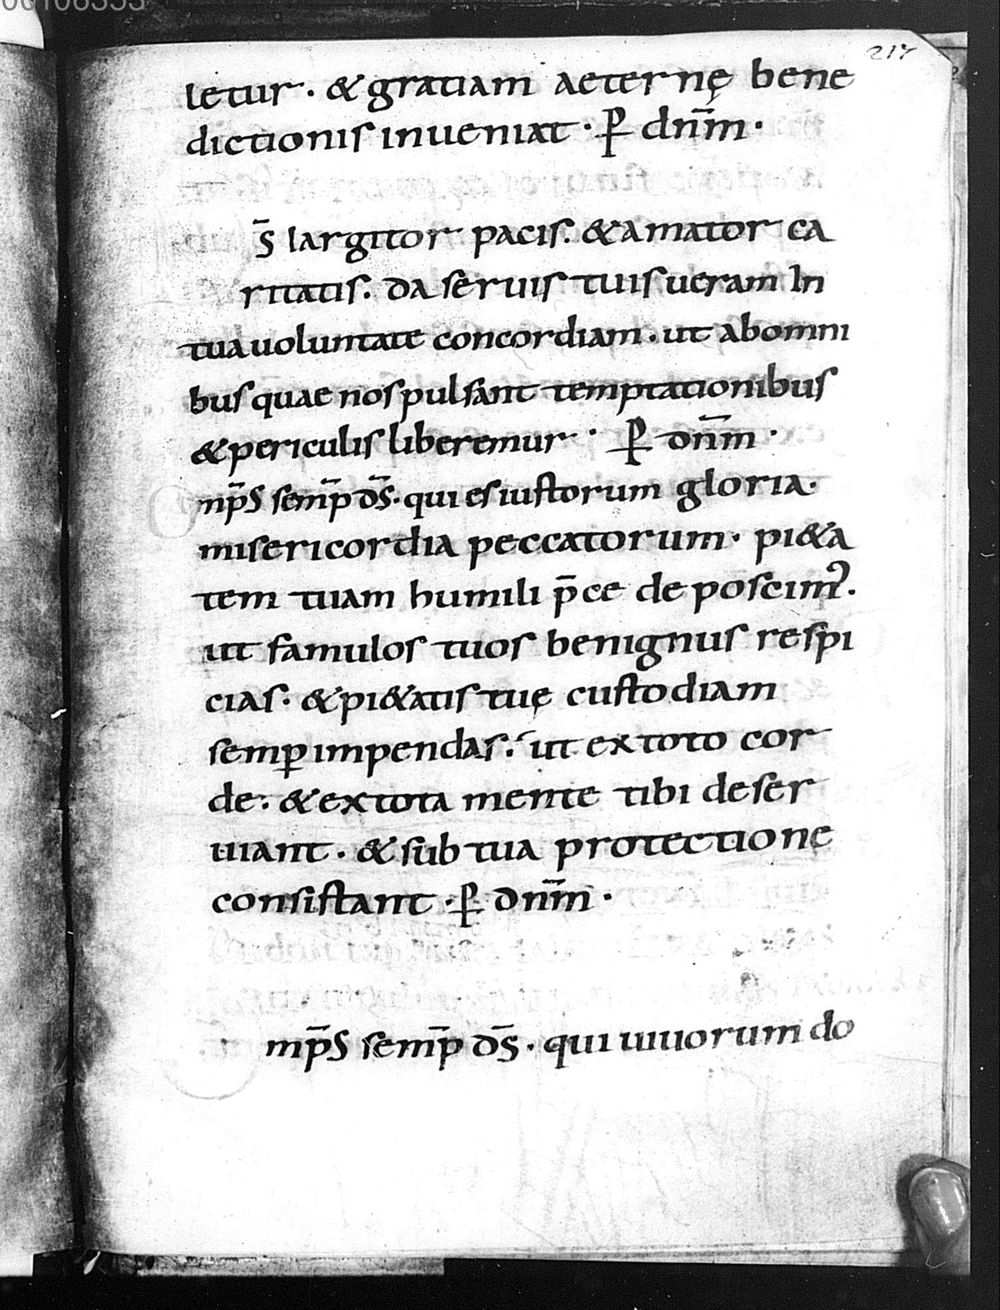 00106353
217
letur. & gratiam aeternę bene
dictionis inueniat · p̄ dnm̄ ·
s̄ largitor pacis. & amator ca
ritatis. da seruis tuis ueram In
tua uoluntate concordiam. ut ab omni
bus quae nos pulsant temptationibus
& periculis liberemur · p̄ dnm̄ ·
mp̄s semp̄ ds̄. qui es iustorum gloria.
misericordia peccatorum. pi&a
tem tuam humili p̄ce deposcim᾿.
ut famulos tuos benignus respi
cias. & pi&atis tuę custodiam
semꝑ impendas. ut ex toto cor
de. & ex tota mente tibi deser
uiant. & sub tua protectione
consistant · p̄ dnm̄ ·
mp̄s semp̄ ds̄. qui uiuorum do